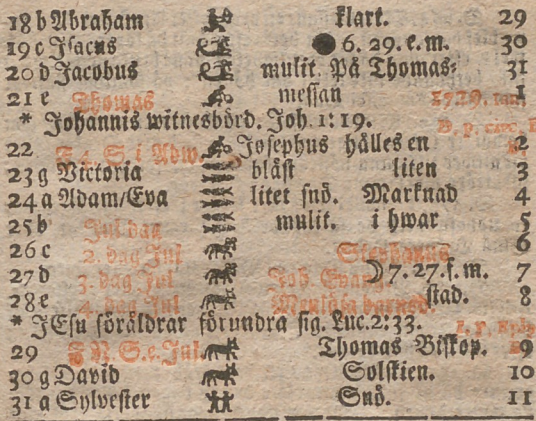 18 b Abraham klart. 29
19 c Isacus 6. 29. e. m. 30
20 d Jacobus mulit. På Thomas- 31
21 e Thomas messan 1
* Johannis witnesbörd. Joh. 1: 19.
22 Josephus hålles en 2
23 g Victoria blåst liten 3
24 a Adam/Eva litet snö. Marknad 4
25 b Jul dag mulit. i hwar 5
26 c 2. dag Jul Stephanus 6
27 d 3. dag Jul Joh. Evang. 7. 27. f. m. 7
28 e 4. dag Jul stad. 8
* JEsu föräldrar förundra sig. Luc. 2: 33.
29 S. e. Jul Thomas Biskop. 9
30 g David Solskien. 10
31 a Sylvester Snö. 11